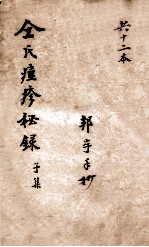 共十二本
邦宇手抄
仝氏痘疹秘錄
子集